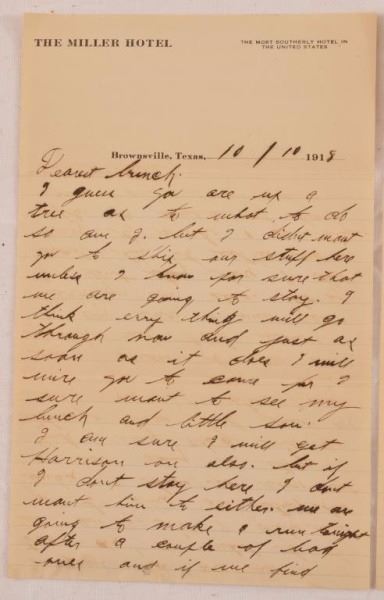 THE MILLER HOTEL
THE MOST SOUTHERLY HOTEL IN
THE UNITED STATES
Brownsville, Texas, 10 / 10 1918
Dearest bunch.
I guess you are up a
tree as to what to do
so am I. but I didnt want
you to ship our stuff here
unless I know for sure that
we are going to stay. I
think every thing will go
through now and just as
soon as it does I will
wire you to come for I
sure want to see my
bunch and little son.
I am sure I will get
Harrison on also. but if
I dont stay here I dont
want him to either. we are
going to make a run tonight
after a couple of bad
ones and if we find